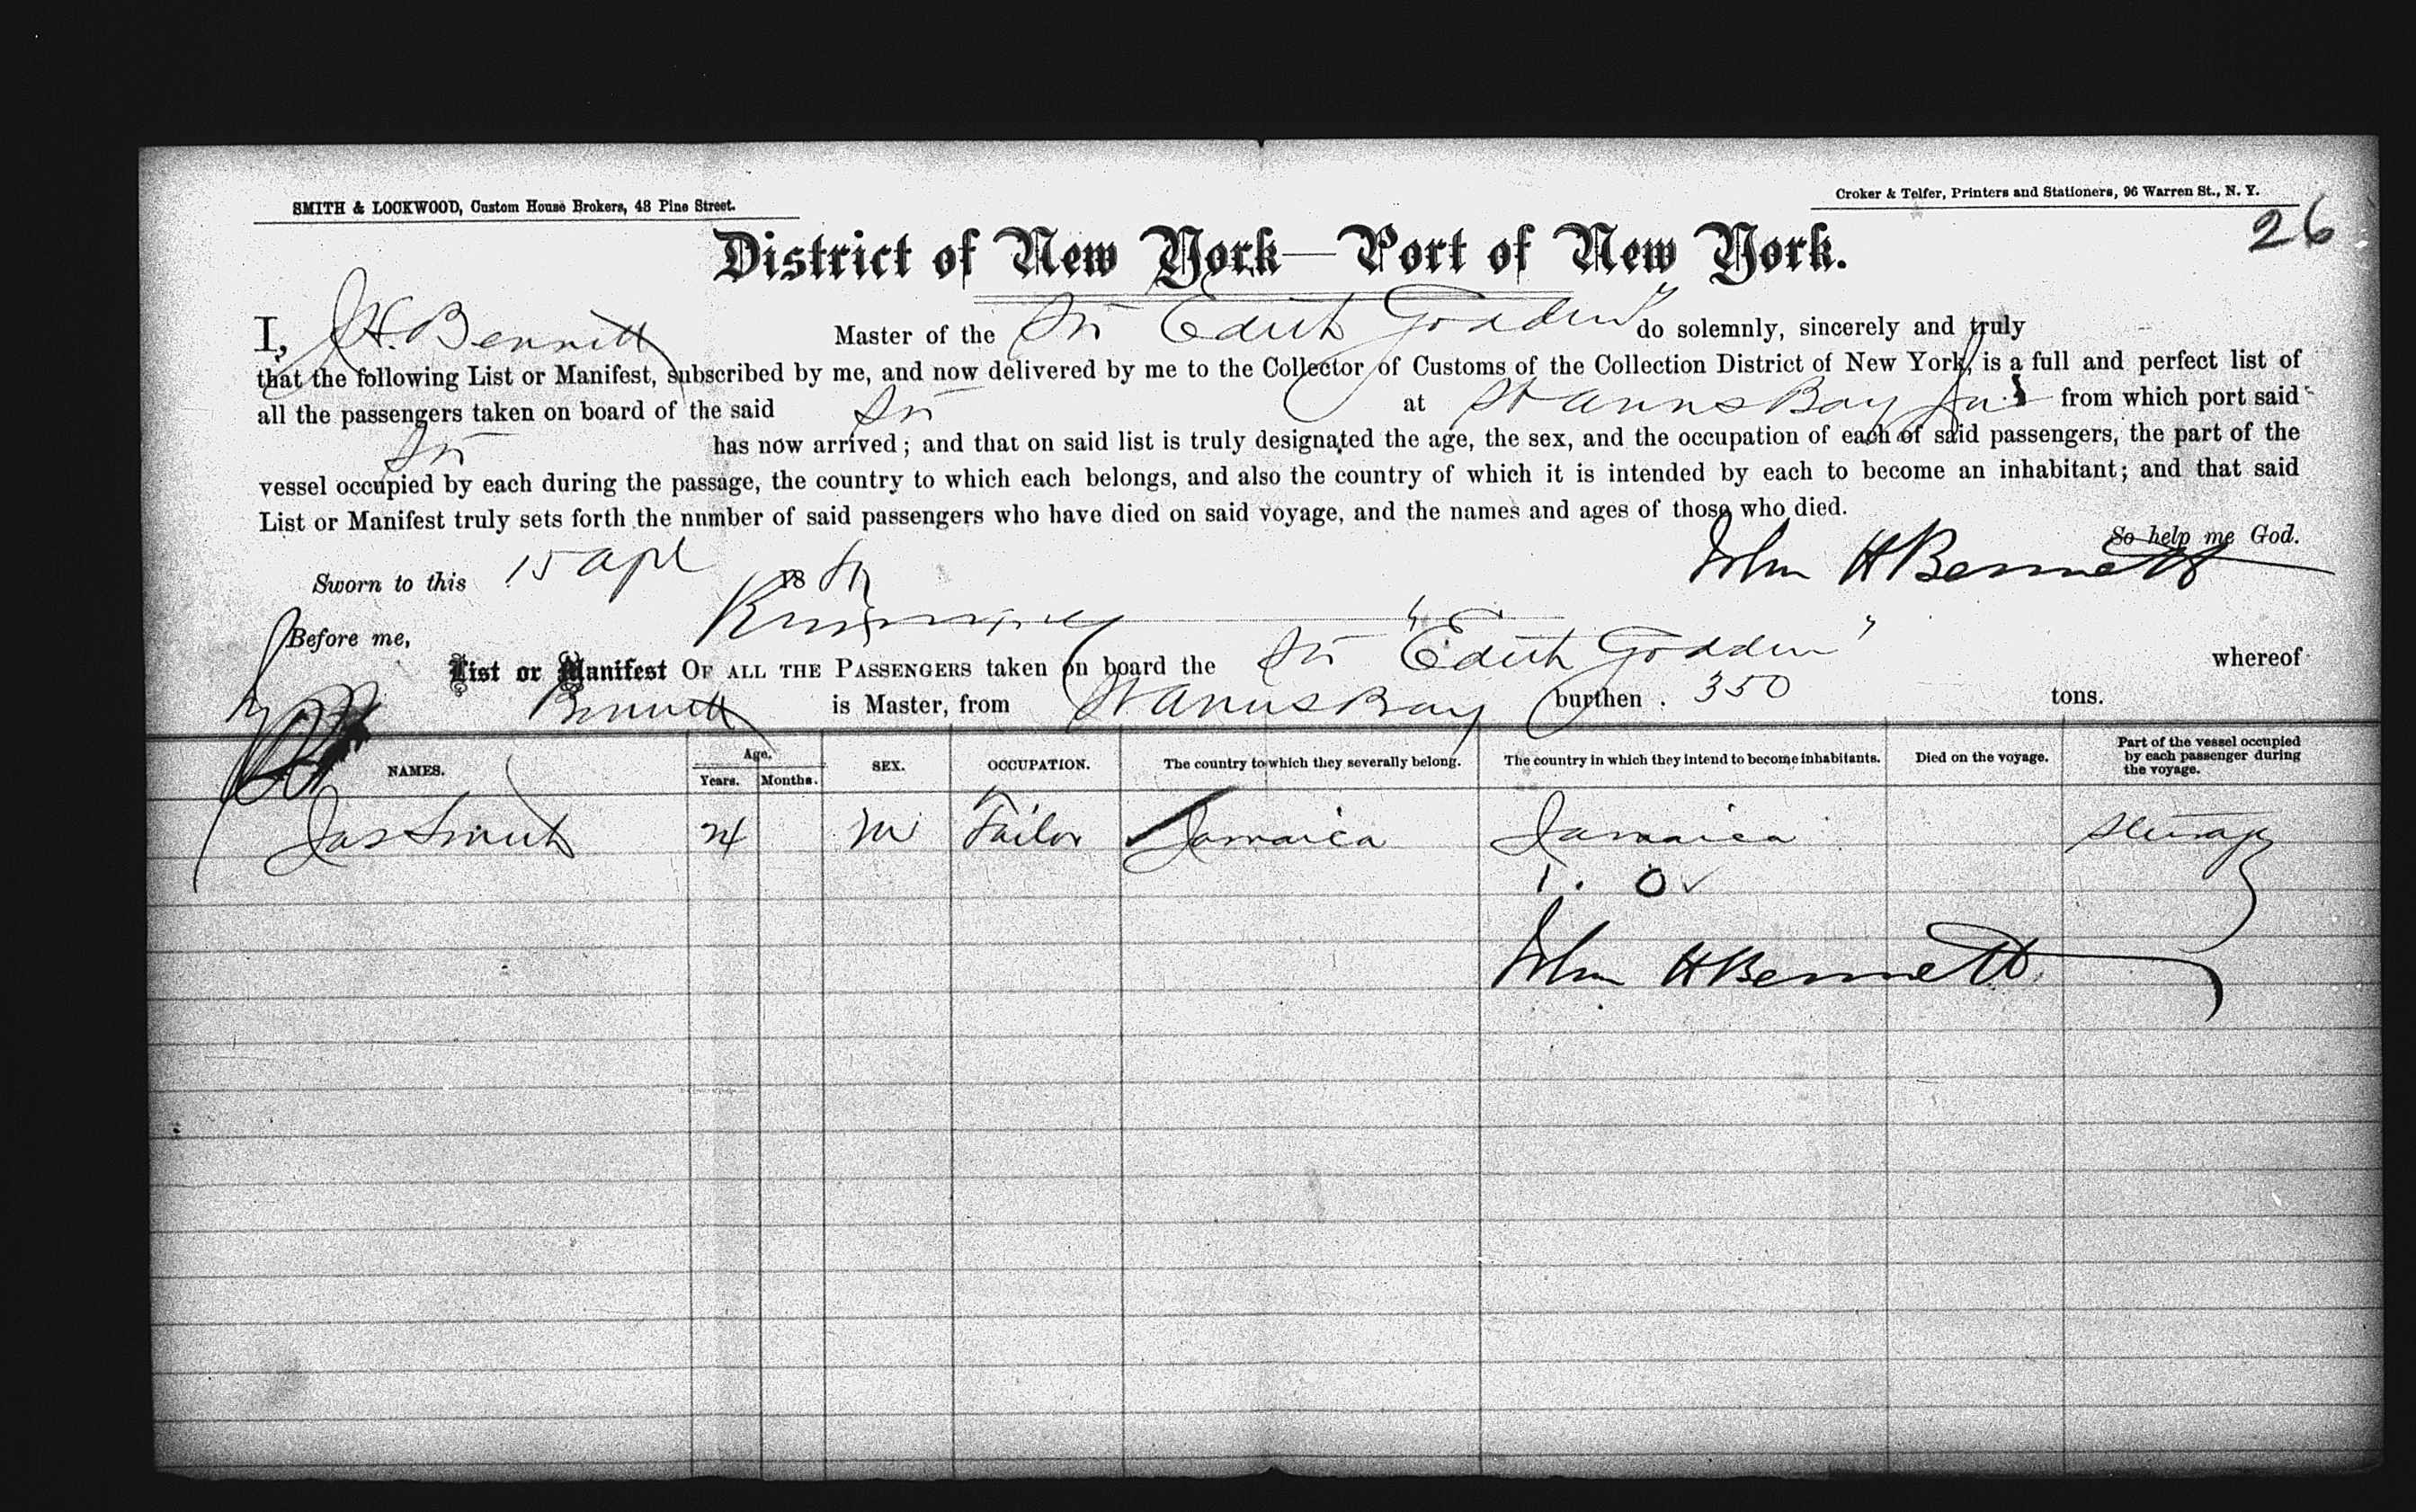 SMITH & LOCKWOOD, Custom House Brokers, 48 Pine Street.
Croker & Telfer, Printers and Stationers, 96 Warren St., N. Y.
26
District of New York—Port of New York.
I, J H. Bennett Master of the Str Edith Godden do solemnly, sincerely and truly
that the following List or Manifest, subscribed by me, and now delivered by me to the Collector of Customs of the Collection District of New York, is a full and perfect list of
all the passengers taken on board of the said Str at St Anns Bay Ja from which port said
Str has now arrived; and that on said list is truly designated the age, the sex, and the occupation of each of said passengers, the part of the
vessel occupied by each during the passage, the country to which each belongs, and also the country of which it is intended by each to become an inhabitant; and that said
List or Manifest truly sets forth the number of said passengers who have died on said voyage, and the names and ages of those who died.
So help me God.
Sworn to this 15 Apl 18 John H Bennett
Before me,
List or Manifest OF ALL THE PASSENGERS taken on board the Str "Edith Godden" whereof
Bennett is Master, from St Anns Bay burthen 350 tons.
NAMES. Age. Years. Months. SEX. OCCUPATION. The country to which they severally belong. The country in which they intend to become inhabitants. Died on the voyage. Part of the vessel occupied by each passenger during the voyage.
Jas Smith 24 M Tailor Jamaica Jamaica Steerage
1. 0 ✓
John H Bennett